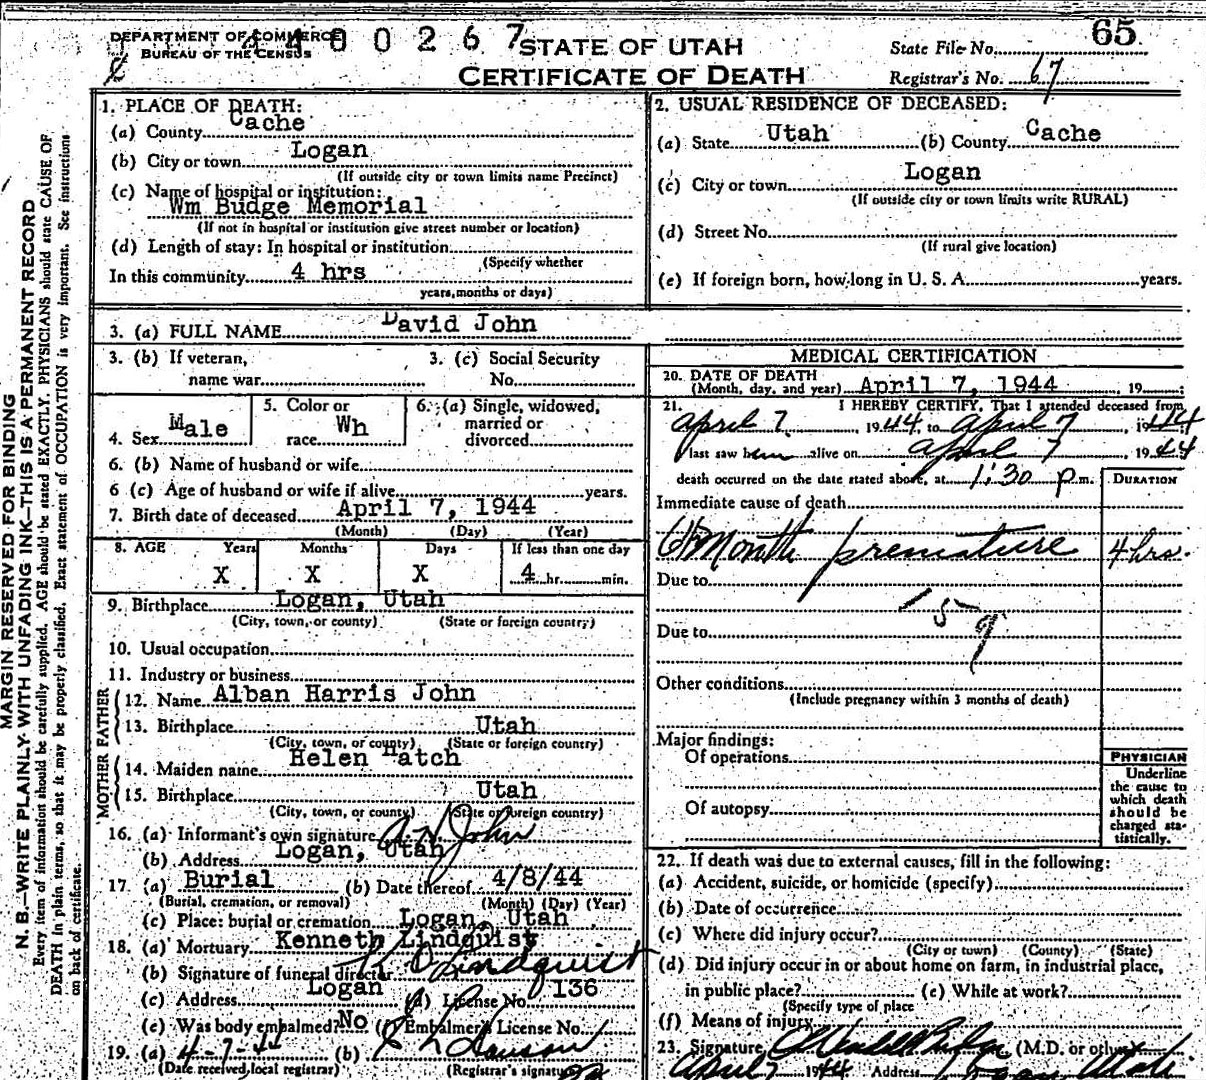 DEPARTMENT OF COMMERCE
BUREAU OF THE CENSUS
4400267
STATE OF UTAH
CERTIFICATE OF DEATH
State File No. 65
Registrar's No. 67
MARGIN RESERVED FOR BINDING
N. B.—WRITE PLAINLY WITH UNFADING INK—THIS IS A PERMANENT RECORD
Every item of information should be carefully supplied. AGE should be stated EXACTLY. PHYSICIANS should state CAUSE OF
DEATH in plain terms, so that it may be properly classified. Exact statement of OCCUPATION is very important. See instructions
on back of certificate.
1. PLACE OF DEATH:
(a) County Cache
(b) City or town Logan
(If outside city or town limits name Precinct)
(c) Name of hospital or institution:
Wm Budge Memorial
(If not in hospital or institution give street number or location)
(d) Length of stay: In hospital or institution
(Specify whether
In this community 4 hrs
years, months or days)
2. USUAL RESIDENCE OF DECEASED:
(a) State Utah (b) County Cache
(c) City or town Logan
(If outside city or town limits write RURAL)
(d) Street No.
(If rural give location)
(e) If foreign born, how long in U. S. A. years.
3. (a) FULL NAME David John
3. (b) If veteran, name war
3. (c) Social Security No.
4. Sex Male
5. Color or race Wh
6. (a) Single, widowed, married or divorced
6. (b) Name of husband or wife
6 (c) Age of husband or wife if alive years.
7. Birth date of deceased April 7, 1944
(Month) (Day) (Year)
8. AGE Years X Months X Days X If less than one day 4 hr. min.
9. Birthplace Logan, Utah
(City, town, or county) (State or foreign country)
10. Usual occupation
11. Industry or business
FATHER
12. Name Alban Harris John
13. Birthplace Utah
(City, town, or county) (State or foreign country)
MOTHER
14. Maiden name Helen Hatch
15. Birthplace Utah
(City, town, or county) (State or foreign country)
16. (a) Informant's own signature A. H. John
(b) Address Logan, Utah
17. (a) Burial (b) Date thereof 4/8/44
(Burial, cremation, or removal) (Month) (Day) (Year)
(c) Place: burial or cremation Logan, Utah
18. (a) Mortuary Kenneth Lindquist
(b) Signature of funeral director K Lindquist
(c) Address Logan (d) License No. 136
(e) Was body embalmed? No (f) Embalmer's License No.
19. (a) 4-7-44 (b)
(Date received local registrar) (Registrar's signature)
MEDICAL CERTIFICATION
20. DATE OF DEATH
(Month, day, and year) April 7, 1944 19 ;
21. I HEREBY CERTIFY, That I attended deceased from
April 7, 1944, to April 7, 1944
last saw him alive on April 7, 1944
death occurred on the date stated above, at 1:30 p.m.
DURATION
Immediate cause of death
6 1/2 Month premature 4 hrs.
Due to
159
Due to
Other conditions
(Include pregnancy within 3 months of death)
Major findings:
Of operations
Of autopsy
PHYSICIAN
Underline
the cause to
which death
should be
charged sta-
tistically.
22. If death was due to external causes, fill in the following:
(a) Accident, suicide, or homicide (specify)
(b) Date of occurrence
(c) Where did injury occur?
(City or town) (County) (State)
(d) Did injury occur in or about home on farm, in industrial place,
in public place? (e) While at work?
(Specify type of place
(f) Means of injury
23. Signature (M.D. or other)
April 7 1944 Address Logan Utah